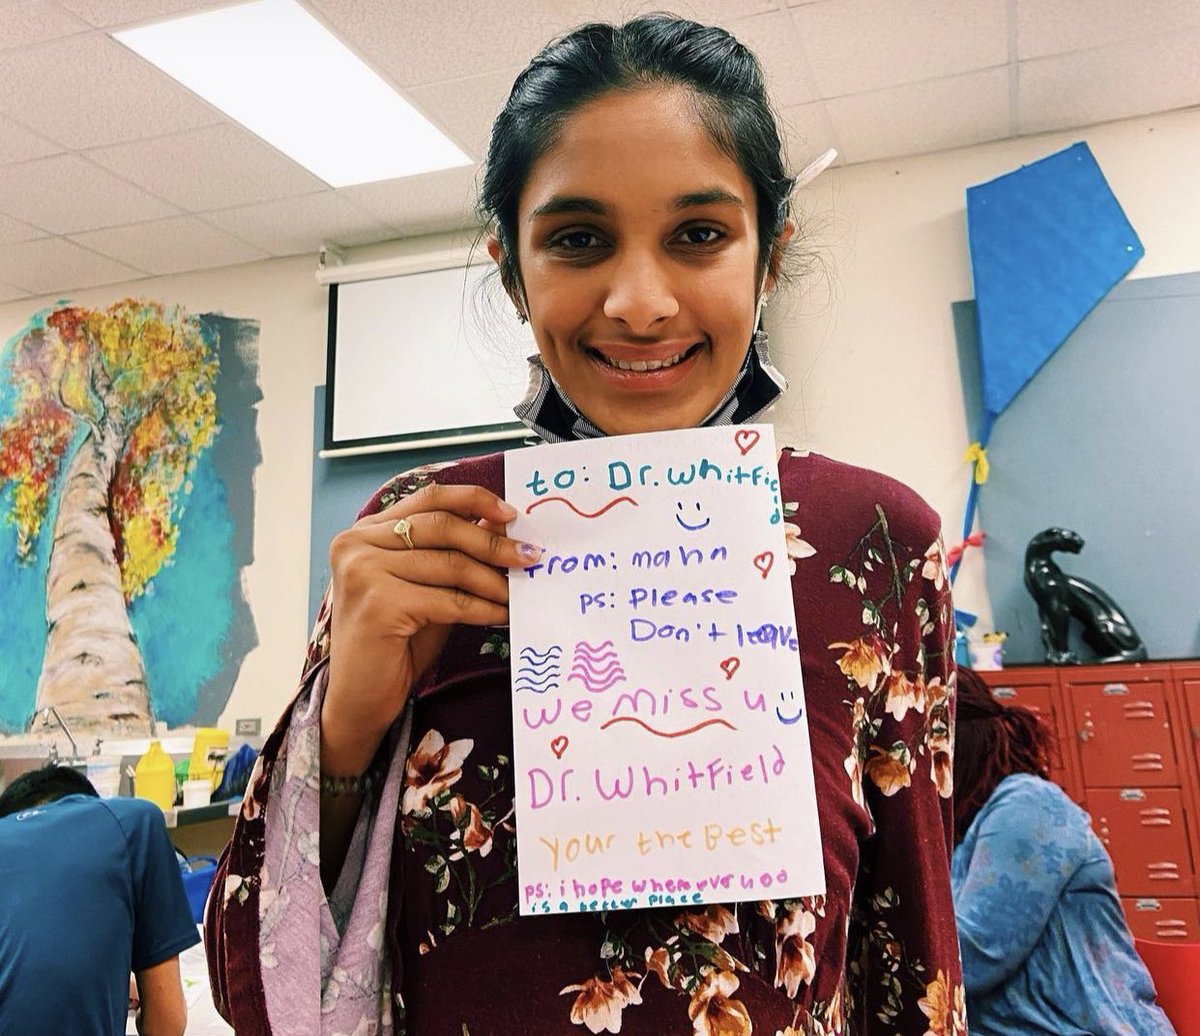 to: Dr. Whitfield
From: nahn
ps: Please
Don't leave
we miss u
Dr. Whitfield
Your the Best
ps: i hope wherever u go
is a better place